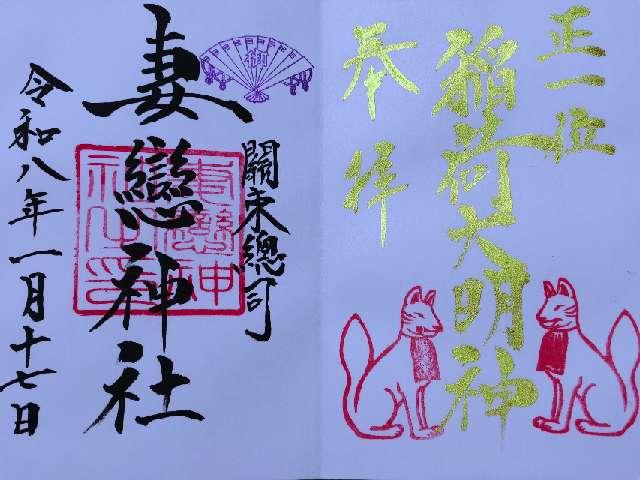 正一位
稲荷大明神
奉拝
關東總司
妻戀神社
令和八年一月十七日